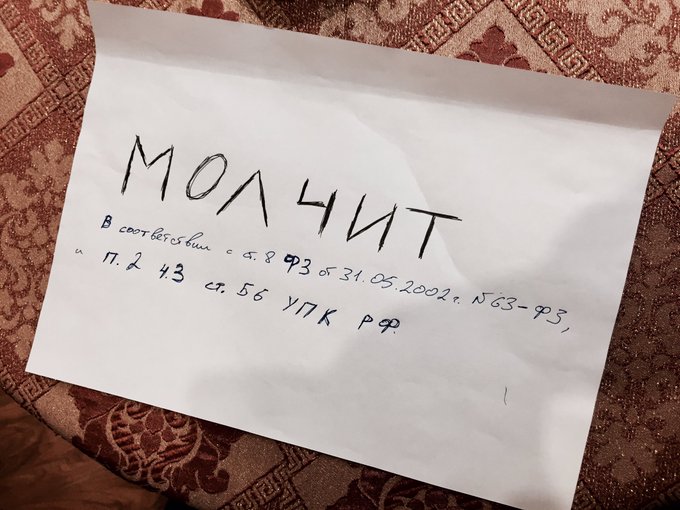 МОЛЧИТ
В соответствии с ст. 8 ФЗ от 31.05.2002 г. №63-ФЗ,
и п.2 ч.3 ст. 56 УПК РФ.